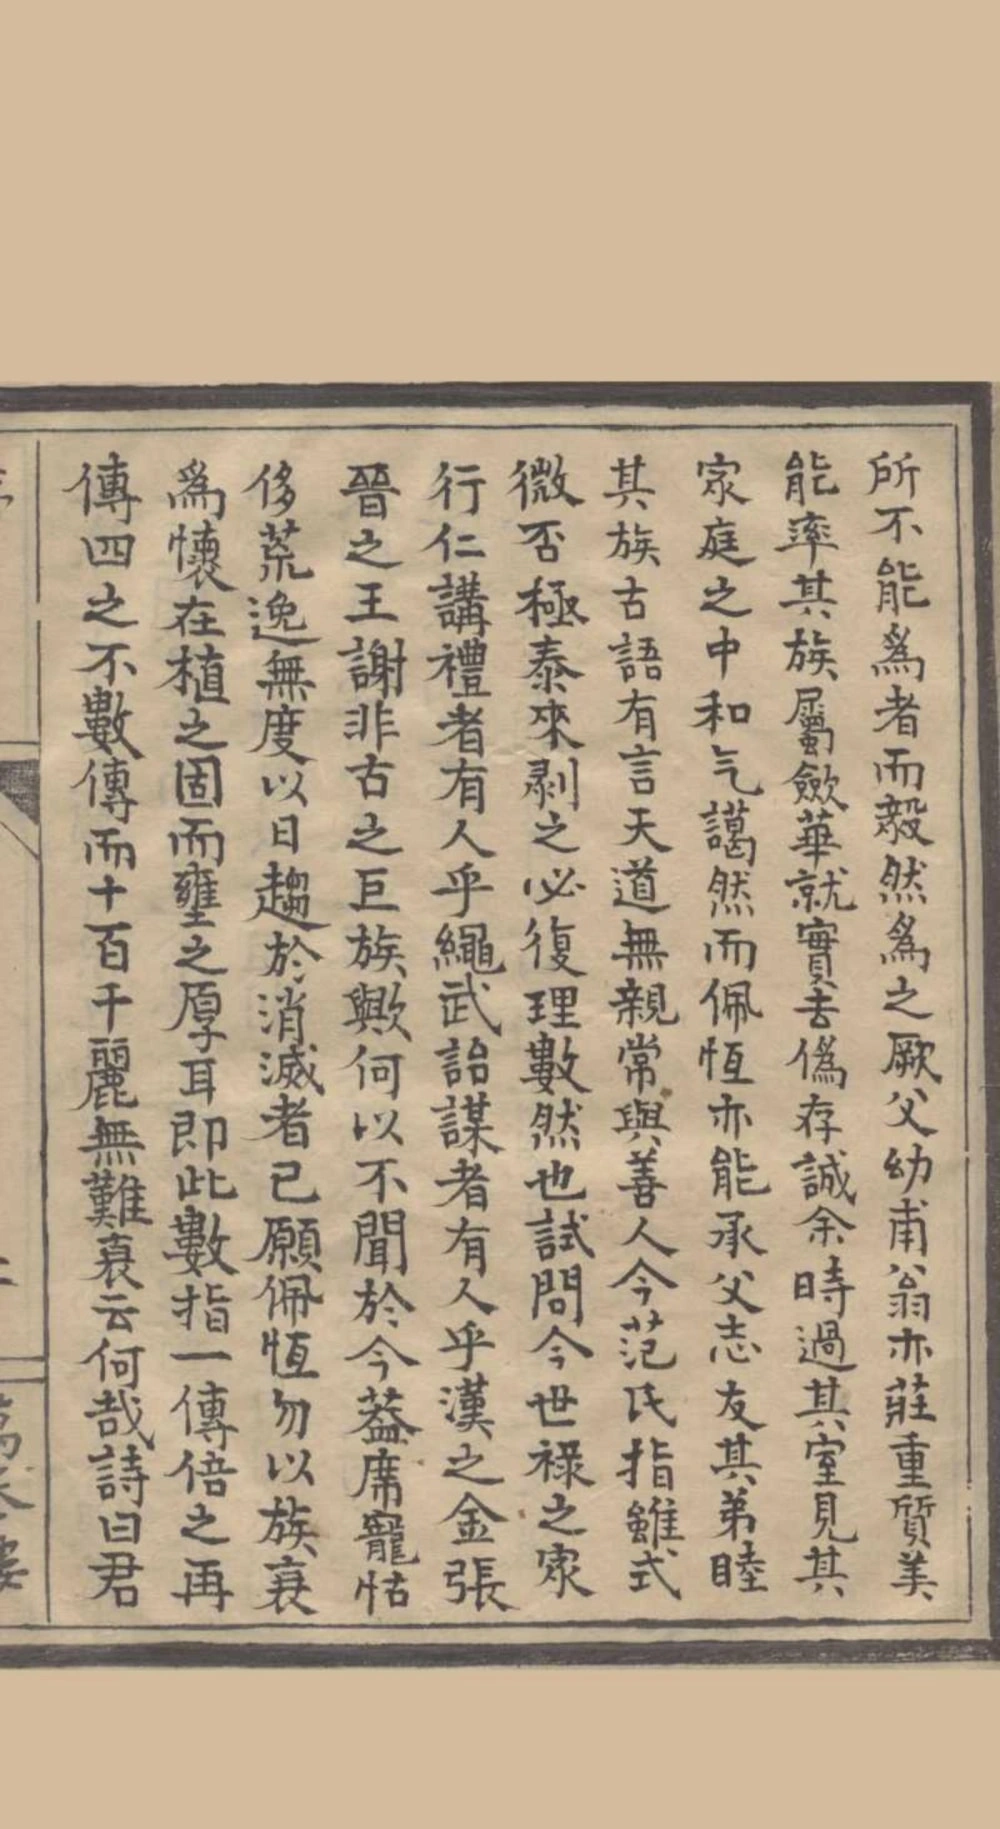 所不能爲者而毅然爲之厥父幼甫翁亦莊重質美
能率其族屬歛華就實去僞存誠余時過其室見其
家庭之中和气藹然而佩恆亦能承父志友其弟睦
其族古語有言天道無親常與善人今范氏指雖式
微否極泰來剥之必復理數然也試問今世禄之家
行仁講禮者有人乎繩武詒謀者有人乎漢之金張
晉之王謝非古之巨族歟何以不聞於今葢席寵怙
侈荒逸無度以日趨於消滅者已願佩恆勿以族衰
爲懷在植之固而壅之厚耳即此數指一傳倍之再
傳四之不數傳而十百千麗無難衰云何哉詩曰君